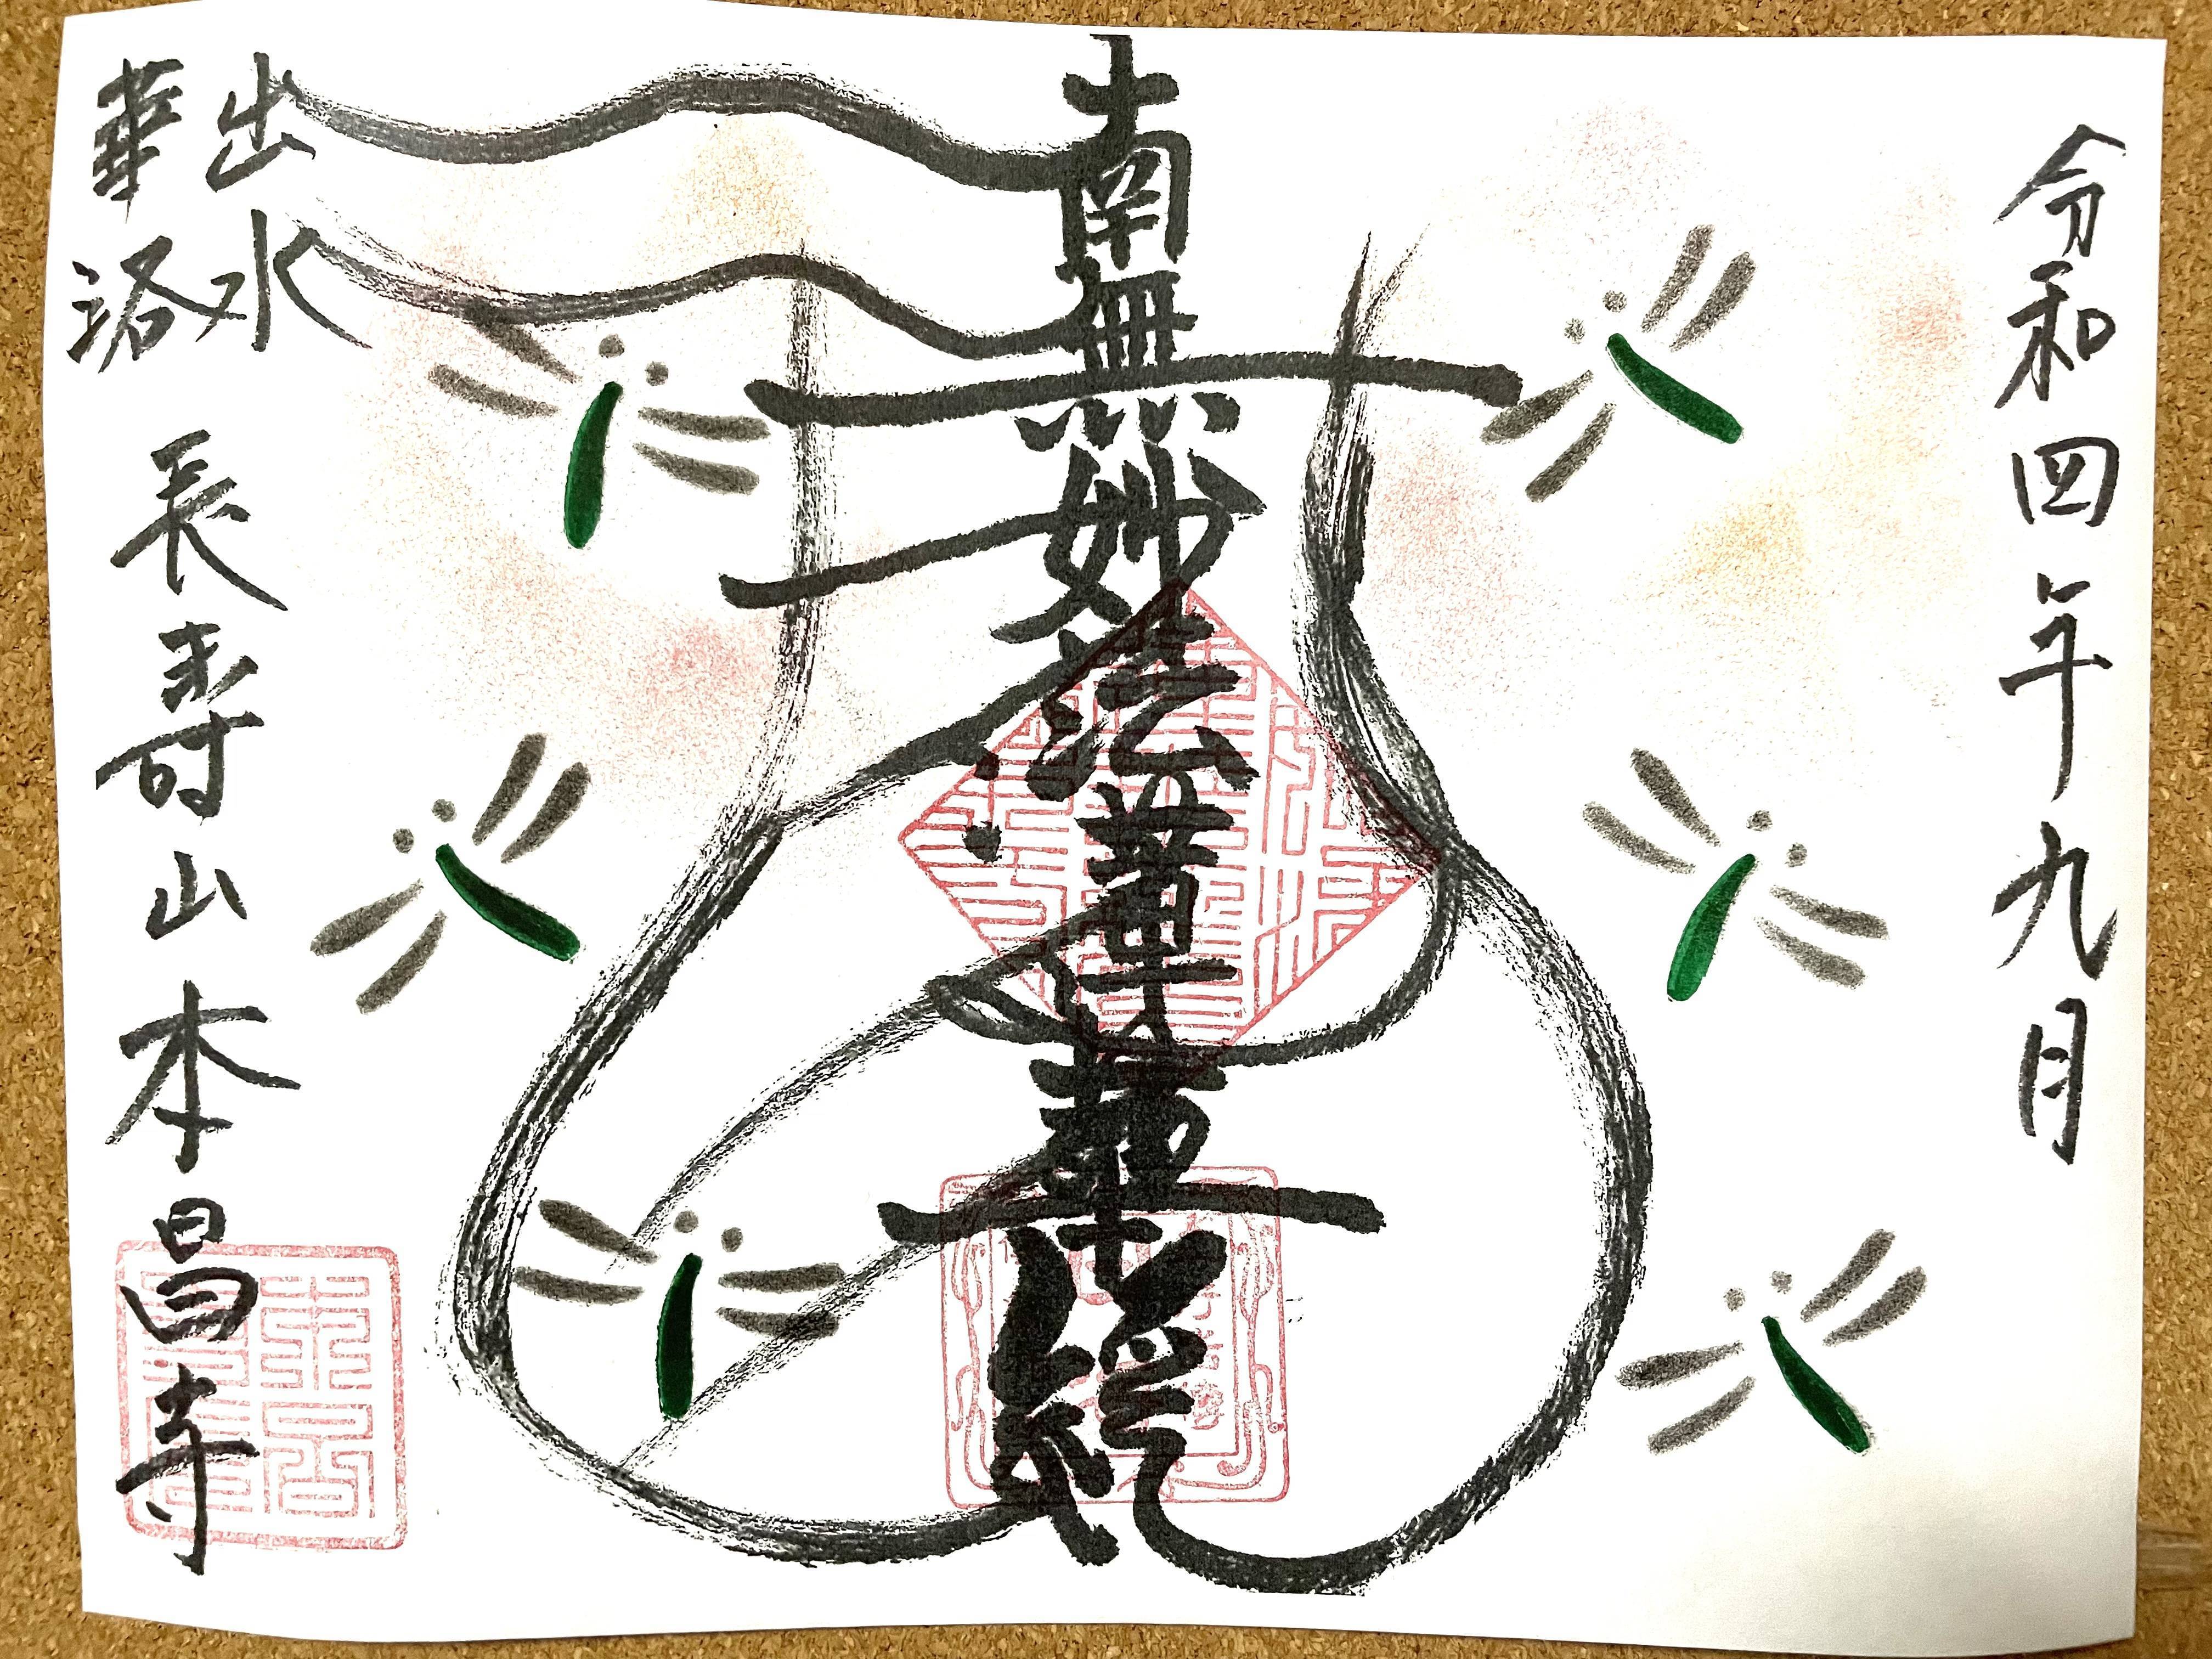 令和四年九月
南無妙法蓮華経
出水
華洛
長壽山本昌寺